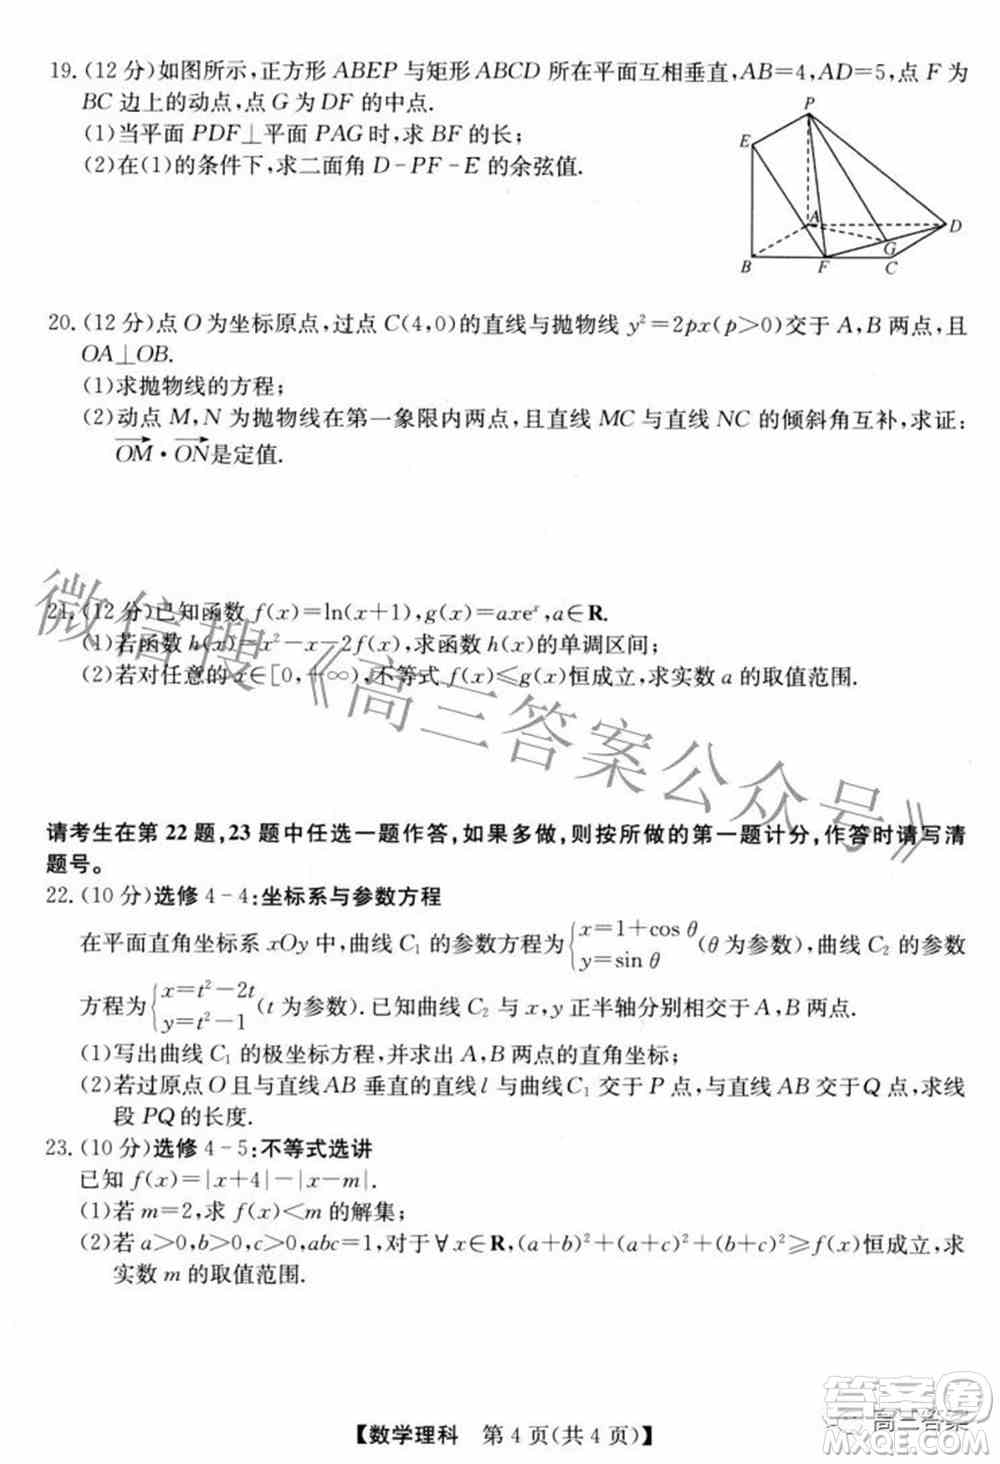 19. (12 分)如图所示,正方形 ABEP 与矩形 ABCD 所在平面互相垂直,AB=4,AD=5,点 F 为
BC 边上的动点,点 G 为 DF 的中点.
(1)当平面 PDF⊥平面 PAG 时,求 BF 的长;
(2)在(1)的条件下,求二面角 D-PF-E 的余弦值.
P
E
A
D
G
B
F
C
20. (12 分)点 O 为坐标原点,过点 C(4,0)的直线与抛物线 y²=2px(p>0)交于 A,B 两点,且
OA⊥OB.
(1)求抛物线的方程;
(2)动点 M,N 为抛物线在第一象限内两点,且直线 MC 与直线 NC 的倾斜角互补,求证:
\overrightarrow{OM}·\overrightarrow{ON}是定值.
微信搜《高三答案公众号》
21. (12 分)已知函数 f(x)=ln(x+1),g(x)=axeˣ,a∈R.
(1)若函数 h(x)=x²-x-2f(x),求函数 h(x)的单调区间;
(2)若对任意的 x∈[0,+∞),不等式 f(x)≤g(x)恒成立,求实数 a 的取值范围.
请考生在第 22 题,23 题中任选一题作答,如果多做,则按所做的第一题计分,作答时请写清
题号。
22. (10 分)选修 4-4:坐标系与参数方程
在平面直角坐标系 xOy 中,曲线 C₁ 的参数方程为{x=1+cos θ y=sin θ (θ 为参数),曲线 C₂ 的参数
方程为{x=t²-2t y=t²-1 (t 为参数).已知曲线 C₂ 与 x,y 正半轴分别相交于 A,B 两点.
(1)写出曲线 C₁ 的极坐标方程,并求出 A,B 两点的直角坐标;
(2)若过原点 O 且与直线 AB 垂直的直线 l 与曲线 C₁ 交于 P 点,与直线 AB 交于 Q 点,求线
段 PQ 的长度.
23. (10 分)选修 4-5:不等式选讲
已知 f(x)=|x+4|-|x-m|.
(1)若 m=2,求 f(x)<m 的解集;
(2)若 a>0,b>0,c>0,abc=1,对于∀x∈R,(a+b)²+(a+c)²+(b+c)²≥f(x)恒成立,求
实数 m 的取值范围.
【数学理科 第 4 页(共 4 页)】
答案圈
高三答案